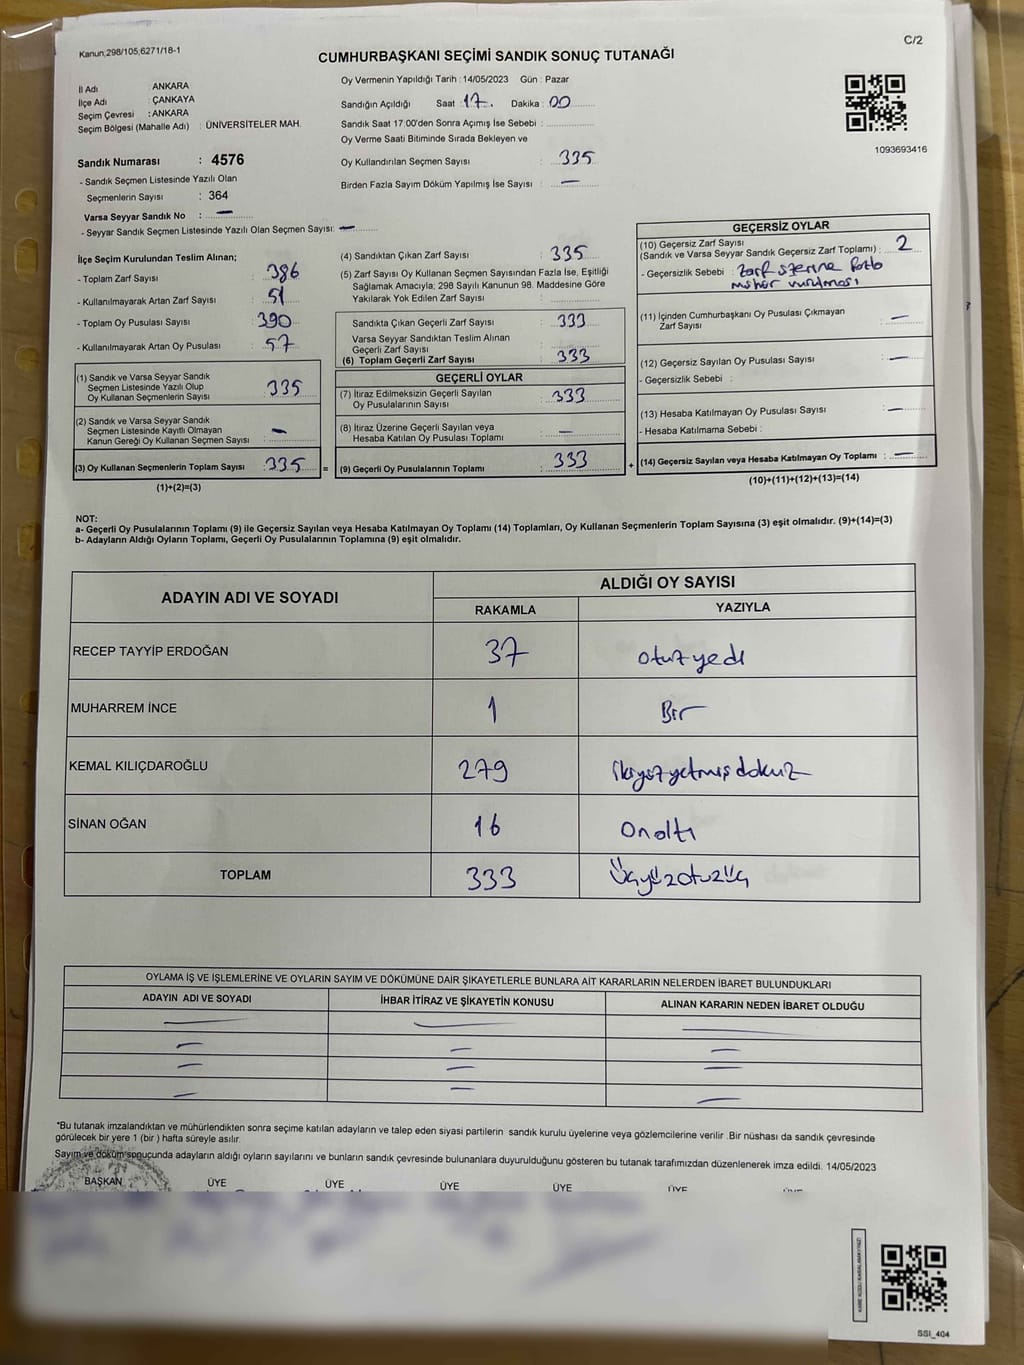 Kanun,298/105,6271/18-1
C/2
CUMHURBAŞKANI SEÇİMİ SANDIK SONUÇ TUTANAĞI
İl Adı ANKARA
İlçe Adı : ÇANKAYA
Seçim Çevresi : ANKARA
Seçim Bölgesi (Mahalle Adı) : ÜNİVERSİTELER MAH.
Sandık Numarası : 4576
- Sandık Seçmen Listesinde Yazılı Olan
Seçmenlerin Sayısı : 364
Varsa Seyyar Sandık No : —
- Seyyar Sandık Seçmen Listesinde Yazılı Olan Seçmen Sayısı: —
Oy Vermenin Yapıldığı Tarih : 14/05/2023 Gün : Pazar
Sandığın Açıldığı Saat : 17. Dakika : 00
Sandık Saat 17:00'den Sonra Açımış İse Sebebi :
Oy Verme Saati Bitiminde Sırada Bekleyen ve
Oy Kullandırılan Seçmen Sayısı : 335
Birden Fazla Sayım Döküm Yapılmış İse Sayısı : —
1093693416
İlçe Seçim Kurulundan Teslim Alınan;
- Toplam Zarf Sayısı : 386
- Kullanılmayarak Artan Zarf Sayısı : 51
- Toplam Oy Pusulası Sayısı : 390
- Kullanılmayarak Artan Oy Pusulası : 57
(1) Sandık ve Varsa Seyyar Sandık
Seçmen Listesinde Yazılı Olup
Oy Kullanan Seçmenlerin Sayısı : 335
(2) Sandık ve Varsa Seyyar Sandık
Seçmen Listesinde Kayıtlı Olmayan
Kanun Gereği Oy Kullanan Seçmen Sayısı : —
(3) Oy Kullanan Seçmenlerin Toplam Sayısı : 335 =
(1)+(2)=(3)
(4) Sandıktan Çıkan Zarf Sayısı : 335
(5) Zarf Sayısı Oy Kullanan Seçmen Sayısından Fazla İse, Eşitliği
Sağlamak Amacıyla; 298 Sayılı Kanunun 98. Maddesine Göre
Yakılarak Yok Edilen Zarf Sayısı :
Sandıkta Çıkan Geçerli Zarf Sayısı : 333
Varsa Seyyar Sandıktan Teslim Alınan
Geçerli Zarf Sayısı :
(6) Toplam Geçerli Zarf Sayısı : 333
GEÇERLİ OYLAR
(7) İtiraz Edilmeksizin Geçerli Sayılan
Oy Pusulalarının Sayısı : 333
(8) İtiraz Üzerine Geçerli Sayılan veya
Hesaba Katılan Oy Pusulası Toplamı : —
(9) Geçerli Oy Pusulalarının Toplamı : 333 +
GEÇERSİZ OYLAR
(10) Geçersiz Zarf Sayısı
(Sandık ve Varsa Seyyar Sandık Geçersiz Zarf Toplamı) : 2
- Geçersizlik Sebebi : Zarf üzerine fazla
mühür vurulması
(11) İçinden Cumhurbaşkanı Oy Pusulası Çıkmayan
Zarf Sayısı : —
(12) Geçersiz Sayılan Oy Pusulası Sayısı : —
- Geçersizlik Sebebi :
(13) Hesaba Katılmayan Oy Pusulası Sayısı : —
- Hesaba Katılmama Sebebi :
(14) Geçersiz Sayılan veya Hesaba Katılmayan Oy Toplamı : —
(10)+(11)+(12)+(13)=(14)
NOT:
a- Geçerli Oy Pusulalarının Toplamı (9) ile Geçersiz Sayılan veya Hesaba Katılmayan Oy Toplamı (14) Toplamları, Oy Kullanan Seçmenlerin Toplam Sayısına (3) eşit olmalıdır. (9)+(14)=(3)
b- Adayların Aldığı Oyların Toplamı, Geçerli Oy Pusulalarının Toplamına (9) eşit olmalıdır.
ADAYIN ADI VE SOYADI
ALDIĞI OY SAYISI
RAKAMLA YAZIYLA
RECEP TAYYİP ERDOĞAN 37 otuzyedi
MUHARREM İNCE 1 Bir
KEMAL KILIÇDAROĞLU 279 ikiyüzyetmişdokuz
SİNAN OĞAN 16 Onaltı
TOPLAM 333 Üçyüzotuzüç
OYLAMA İŞ VE İŞLEMLERİNE VE OYLARIN SAYIM VE DÖKÜMÜNE DAİR ŞİKAYETLERLE BUNLARA AİT KARARLARIN NELERDEN İBARET BULUNDUKLARI
ADAYIN ADI VE SOYADI İHBAR İTİRAZ VE ŞİKAYETİN KONUSU ALINAN KARARIN NEDEN İBARET OLDUĞU
*Bu tutanak imzalandıktan ve mühürlendikten sonra seçime katılan adayların ve talep eden siyasi partilerin sandık kurulu üyelerine veya gözlemcilerine verilir .Bir nüshası da sandık çevresinde
görülecek bir yere 1 (bir ) hafta süreyle asılır.
Sayım ve döküm sonucunda adayların aldığı oyların sayılarını ve bunların sandık çevresinde bulunanlara duyurulduğunu gösteren bu tutanak tarafımızdan düzenlenerek imza edildi. 14/05/2023
BAŞKAN ÜYE ÜYE ÜYE ÜYE ÜYE ÜYE
SSI_404